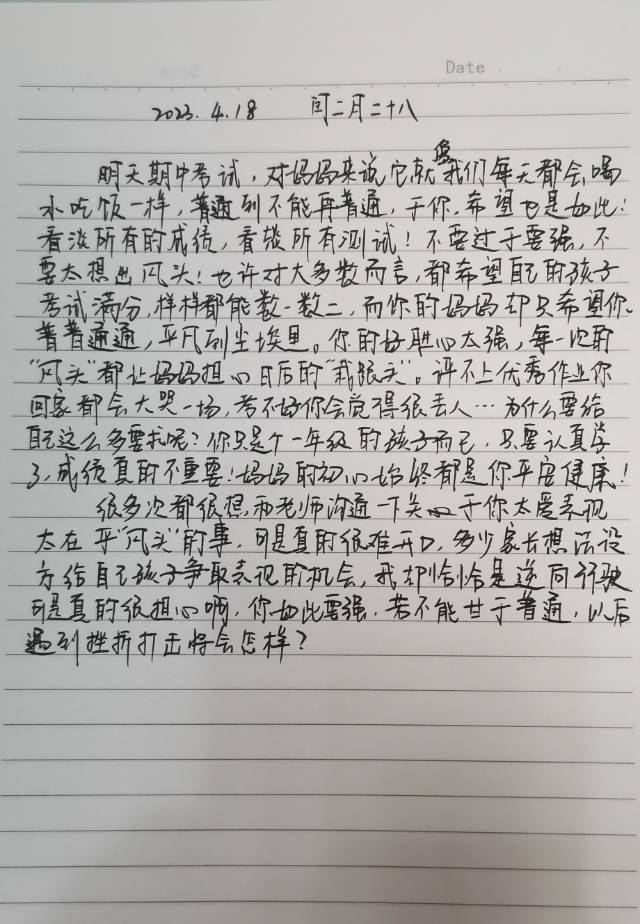 Date
2023.4.18 闰二月二十八
明天期中考试,对妈妈来说它就像我们每天都会喝
水吃饭一样,普通到不能再普通,于你,希望也是如此!
看淡所有的成绩,看淡所有测试!不要过于要强,不
要太想出风头!也许对大多数而言,都希望自己的孩子
考试满分,样样都能数一数二,而你的妈妈却只希望你
普普通通,平凡到尘埃里。你的好胜心太强,每一次的
“风头”都让妈妈担心日后的“栽跟头”。评不上优秀作业你
回家都会大哭一场,考不好你会觉得很丢人…为什么要给
自己这么多要求呢?你只是个一年级的孩子而已,只要认真学
了,成绩真的不重要!妈妈的初心始终都是你平安健康!
很多次都很想和老师沟通一下关于你太爱表现
太在乎“风头”的事,可是真的很难开口,多少家长想法设
方给自己孩子争取表现的机会,我却恰恰是逆向行驶
可是真的很担心啊,你如此要强,若不能甘于普通,以后
遇到挫折打击将会怎样?